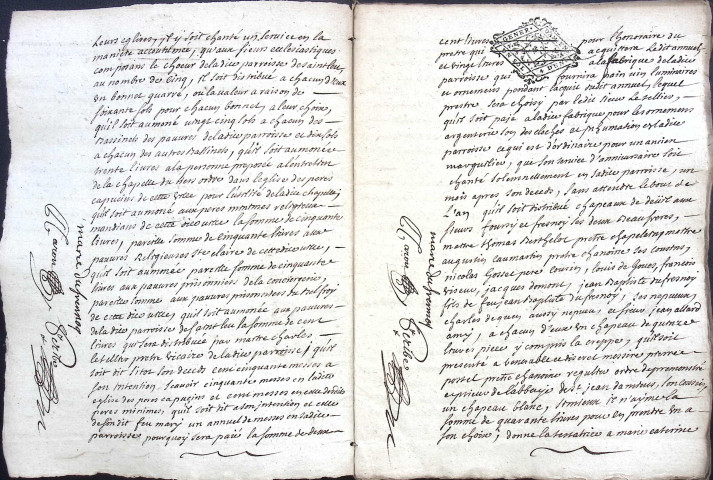 Leurs eglises, et y soit chanté un service en la
maniere accoutumée, qu'aux sieurs ecclesiastiques
composans le choeur de ladite parroisse de saint leu,
au nombre de cinq, il soit distribué a chacun d'eux
un bonnet quarré, ou la valeur a raison de
soixante sols pour chacun bonnet, a leur choix,
qu'il soit aumoné vingt cinq sols a chacun des
bassinets des pauvres de ladite parroisse et dix sols
a chacun des autres bassinets, qu'il soit aumonée
trente livres a la personne preposé a l'entretien
de la chapelle du tiers ordre dans l'eglise des peres
capucins de cette ville pour l'utilité de ladite chapelle,
qu'il soit aumoné aux peres minimes religieux
mandians de cette ditte ville la somme de cinquante
livres, pareille somme de cinquante livres aux
pauvres Religieuses Ste claire de cette ditte ville,
qu'il soit aumonée pareille somme de cinquante
livres aux pauvres prisonniers de la conciergerie,
pareille somme aux pauvres prisonniers du beffroy
de cette ditte ville, qu'il soit aumoné aux pauvres
de ladite parroisse de saint leu la somme de cent
livres qui sera distribuée par maitre charles
le tellier pretre vicaire de ladite parroisse; qu'il
soit dit sitot son decedz cent cinquante messes a
son intention, scavoir cinquante messes en laditte
eglise des peres capucins et cent messes en celle desdits
peres minimes, qu'il soit dit a son intention et celle
de son dit feu mary un annuel de messes en ladite
parroisse pourquoy sera paié la somme de deux
marie du fresnoy
cent livres pour l'honoraire du
pretre qui acquitera ledit annuel
et vingt livres a la fabrique de ladite
parroisse qui fournira pain vin luminaires
et ornemens pendant laquit dudit annuel, lequel
prestre sera choisy par ledit sieur le tellier,
qu'il soit paié a ladite fabrique pour les ornemens
argenterie son des cloches et inhumation en ladite
parroisse ce qui est d'ordinaire pour un ancien
marguillier, que son service d'anniversaire soit
chanté solennellement en ladite parroisse, un
mois apres son decedz, sans attendre le bout de
l'an, qu'il soit distribué chapeaux de deuil aux
sieurs foursy et fresnoy ses deux beaufreres,
maitre thomas Berthelot pretre chapelain, maitre
augustin caumartin pretre chanoine ses cousins,
nicolas Gosset pere cousin, louis de Goues, francois
viseur, jacques domont, jean Baptiste du fresnoy
fils de feu jean Baptiste du fresnoy, ses nepveux,
charles de quen aussy nepveu, et sieur jean allard
amy, a chacun d'eux un chapeau de quinze
livres piece y compris la creppe, qu'il soit
presenté a venerable et discret messire pierre
postel pretre chanoine regulier ordre de premontré
et prieur de l'abbaye de st jean d'amiens, son cousin,
un chapeau blanc, si mieux il n'ayme la
somme de quarante livres pour en prendre un a
son choix; donne la testatrice a marie caterine
marie du fresnoy